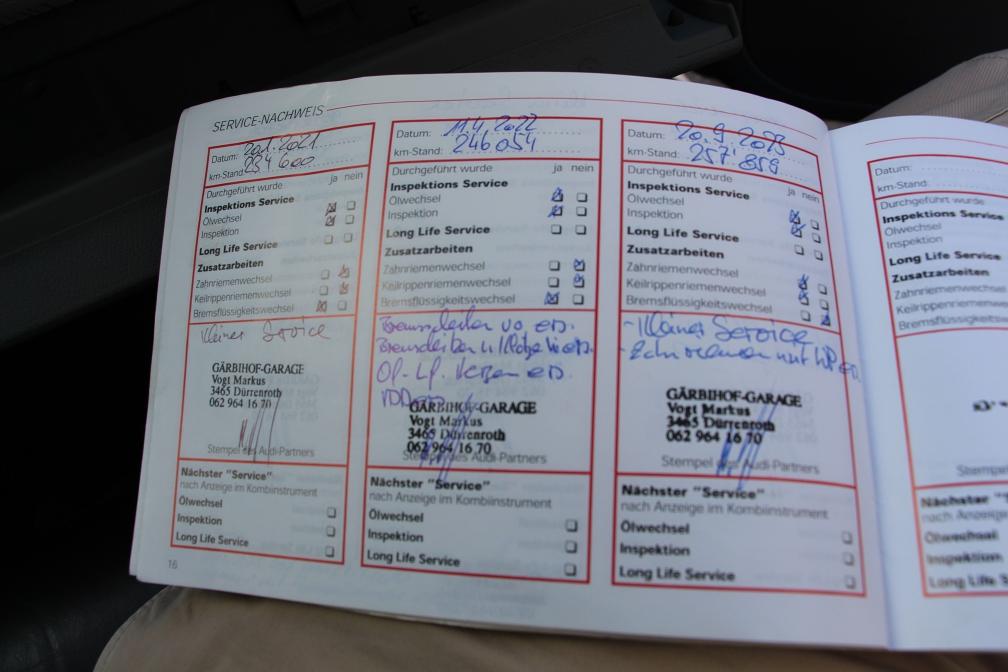 SERVICE-NACHWEIS
Datum: 20.1.2021
km-Stand: 234600
Durchgeführt wurde ja nein
Inspektions Service
Ölwechsel
Inspektion
Long Life Service
Zusatzarbeiten
Zahnriemenwechsel
Keilrippenriemenwechsel
Bremsflüssigkeitswechsel
Kleiner Service
GÄRBIHOF-GARAGE
Vogt Markus
3465 Dürrenroth
062 964 16 70
Stempel des Audi-Partners
Nächster "Service"
nach Anzeige im Kombiinstrument
Ölwechsel
Inspektion
Long Life Service
16
Datum: 11.4.2022
km-Stand: 246054
Durchgeführt wurde ja nein
Inspektions Service
Ölwechsel
Inspektion
Long Life Service
Zusatzarbeiten
Zahnriemenwechsel
Keilrippenriemenwechsel
Bremsflüssigkeitswechsel
Bremsscheiben vo ers.
Bremsscheiben u Klötze hi ers.
ers.
GÄRBIHOF-GARAGE
Vogt Markus
3465 Dürrenroth
062 964 16 70
Stempel des Audi-Partners
Nächster "Service"
nach Anzeige im Kombiinstrument
Ölwechsel
Inspektion
Long Life Service
Datum: 20.9.2023
km-Stand: 257'859
Durchgeführt wurde ja nein
Inspektions Service
Ölwechsel
Inspektion
Long Life Service
Zusatzarbeiten
Zahnriemenwechsel
Keilrippenriemenwechsel
Bremsflüssigkeitswechsel
- Kleiner Service
- Zahnriemen mit WP ers.
GÄRBIHOF-GARAGE
Vogt Markus
3465 Dürrenroth
062 964 16 70
Stempel des Audi-Partners
Nächster "Service"
nach Anzeige im Kombiinstrument
Ölwechsel
Inspektion
Long Life Service
Datum:
km-Stand:
Durchgeführt wurde
Inspektions Service
Ölwechsel
Inspektion
Long Life Service
Zusatzarbeiten
Zahnriemenwechsel
Keilrippenriemenwe
Bremsflüssigkeitswe
Stempel
Nächster "S
nach Anzeige
Ölwechsel
Inspektion
Long Life S